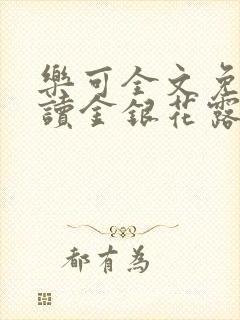 樂可全文免
讀金銀花露
都有為